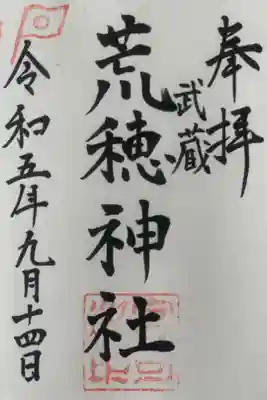 奉拝
武蔵
荒穂神社
令和五年九月十四日